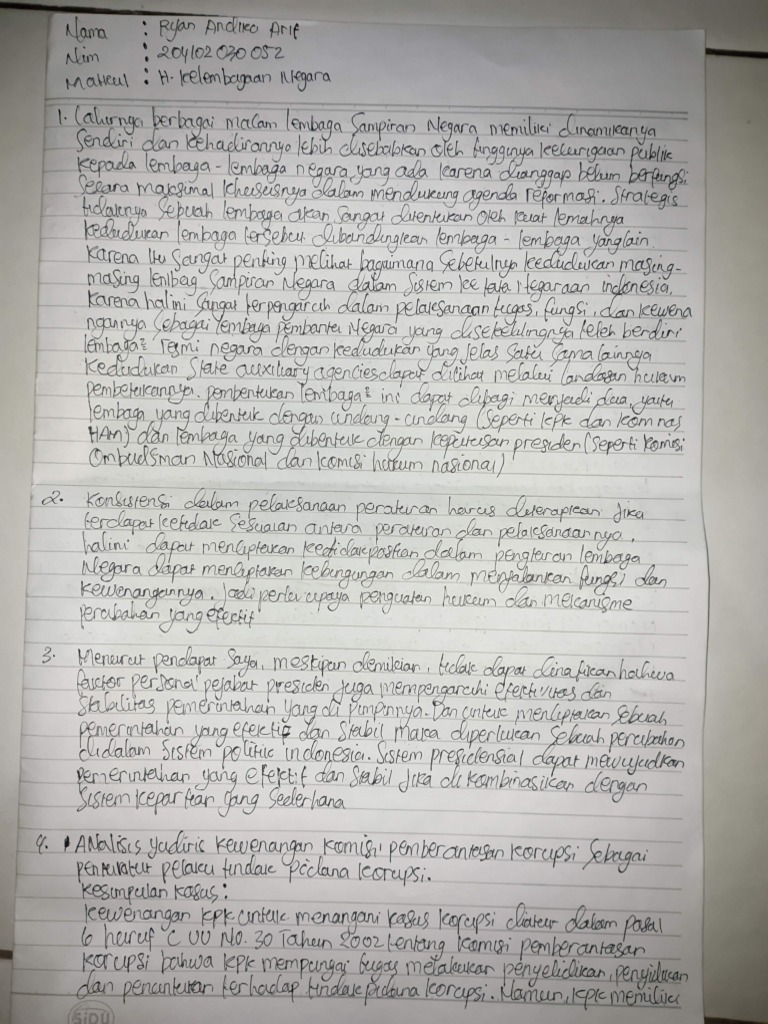 Nama : Ryan Andiko Arif
Nim : 204102030052
Matkul : H. Kelembagaan Negara
1. Lahirnya berbagai macam lembaga Sampiran Negara memiliki dinamikanya
Sendiri dan kehadirannya lebih disebabkan oleh tingginya kecurigaan publik
kepada lembaga-lembaga negara yang ada karena dianggap belum berfungsi
Secara maksimal khususnya dalam mendukung agenda reformasi. Strategis
tidaknya sebuah lembaga akan sangat ditentukan oleh kuat lemahnya
kedudukan lembaga tersebut dibandingkan lembaga-lembaga yang lain.
Karena itu Sangat penting melihat bagaimana sebetulnya kedudukan masing-
masing lembag Sampiran Negara dalam sistem ke tata Negaraan indonesia,
karena hal ini Sangat terpengaruh dalam pelaksanaan tugas, fungsi, dan kewena
ngannya sebagai lembaga pembantu Negara yang disekelilingnya telah berdiri
lembaga² resmi negara dengan kedudukan yang jelas satu sama lainnya
kedudukan State auxiliary agencies dapat dilihat melalui landasan hukum
pembentukannya. pembentukan lembaga² ini dapat dibagi menjadi dua, yaitu
lembaga yang dibentuk dengan undang-undang (seperti kpk dan komnas
HAM) dan lembaga yang dibentuk dengan keputusan presiden (seperti komisi
Ombudsman Nasional dan komisi hukum nasional)
2. Konsistensi dalam pelaksanaan peraturan harus diterapkan jika
terdapat ketidak sesuaian antara peraturan dan pelaksanaannya,
hal ini dapat menciptakan ketidakpastian dalam pengturan lembaga
Negara dapat menciptakan kebingungan dalam menjalankan fungsi dan
kewenangannya. Jadi perlu upaya penguatan hukum dan mekanisme
perubahan yang efektif
3. Menurut pendapat saya, meskipun demikian, tidak dapat dinafikan bahwa
factor personal pejabat presiden juga mempengaruhi efektivitas dan
Stabilitas pemerintahan yang di pimpinnya. Dan untuk menciptakan sebuah
pemerintahan yang efektif dan stabil maka diperlukan sebuah perubahan
didalam sistem politik indonesia. Sistem presidensial dapat mewujudkan
pemerintahan yang efektif dan stabil jika di kombinasikan dengan
sistem kepartian yang sederhana
4. • ANalisis yudiris kewenangan komisi pemberantasan korupsi sebagai
penuntut pelaku tindak pidana korupsi.
kesimpulan kasus :
kewenangan kpk untuk menangani kasus korupsi diatur dalam pasal
6 huruf C UU No. 30 Tahun 2002 tentang komisi pemberantasan
korupsi bahwa kpk mempunyai tugas melakukan penyelidikan, penyidikan
dan penuntutan terhadap tindak pidana korupsi. Namun, kpk memiliki
SiDU